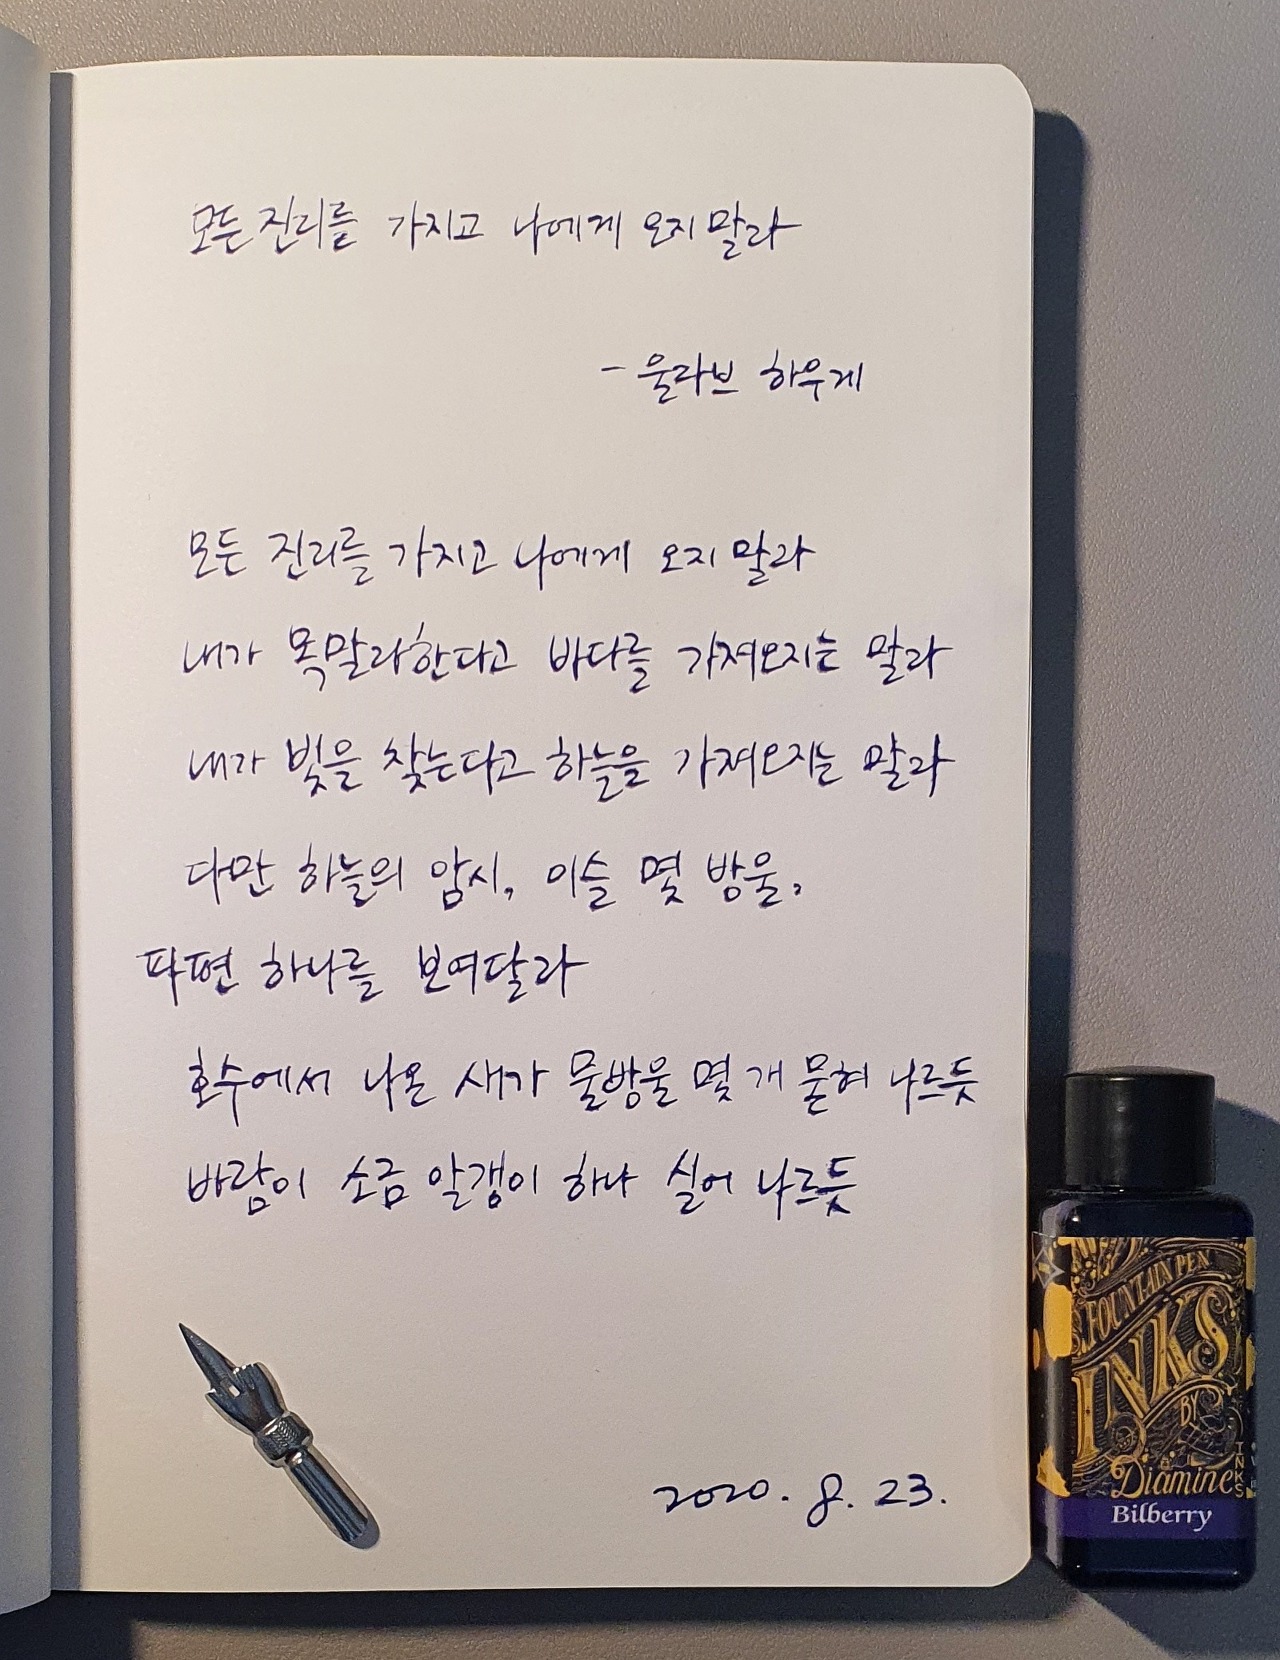 모든 진리를 가지고 나에게 오지 말라
- 울라브 하우게
모든 진리를 가지고 나에게 오지 말라
내가 목말라한다고 바다를 가져오지는 말라
내가 빛을 찾는다고 하늘을 가져오지는 말라
다만 하늘의 암시, 이슬 몇 방울,
파편 하나를 보여달라
호수에서 나온 새가 물방울 몇 개 묻혀 나르듯
바람이 소금 알갱이 하나 실어 나르듯
2020. 8. 23.
FOUNTAIN PEN
INKS
BY
Diamine
INKS
Bilberry